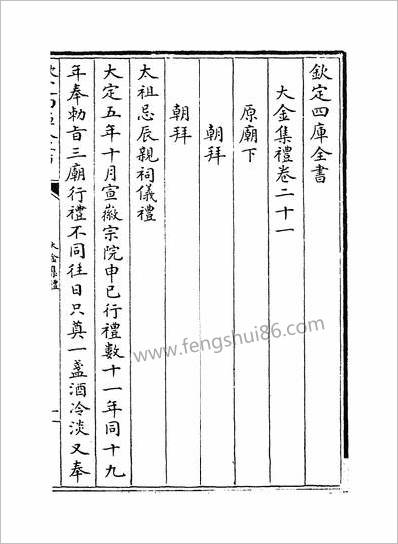 欽定四庫全書
大金集禮卷二十一
原廟下
朝拜
朝拜
太祖忌辰親祠儀禮
大定五年十月宣徽宗院申已行禮數十一年同十九
年奉勅旨三廟行禮不同往日只奠一盞酒冷淡又奉
大金集禮
一
www.fengshui86.com